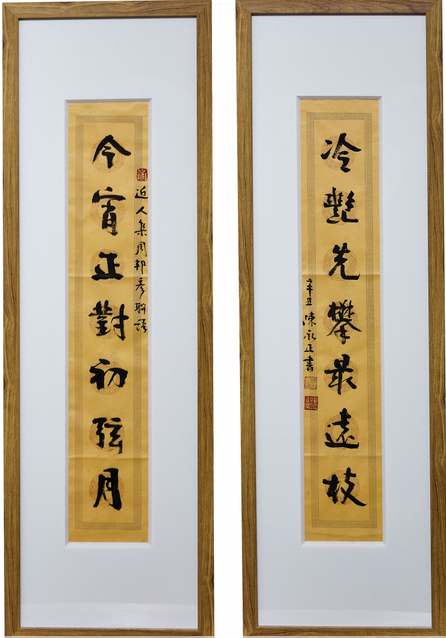 今宵正對初弦月
近人集周邦彥聯語
冷艷先攀最遠枝
辛丑陳永正書